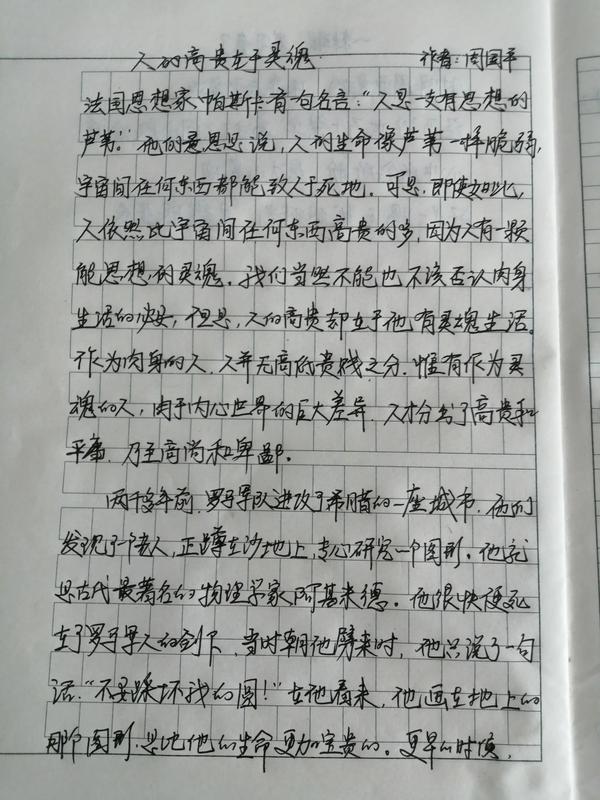 人的高贵在于灵魂 作者:周国平
法国思想家帕斯卡有一句名言:“人是一支有思想的
芦苇。”他的意思是说,人的生命像芦苇一样脆弱,
宇宙间任何东西都能致人于死地。可是,即使如此,
人依然比宇宙间任何东西高贵的多,因为人有一颗
能思想的灵魂。我们当然不能也不该否认肉身
生活的必要,但是,人的高贵却在于他有灵魂生活。
作为肉身的人,人并无高低贵贱之分。惟有作为灵
魂的人,由于内心世界的巨大差异,人才分出了高贵和
平庸,乃至高尚和卑鄙。
两千多年前,罗马军队进攻了希腊的一座城市,他们
发现了一个老人,正蹲在沙地上,专心研究一个图形。他就
是古代最著名的物理学家阿基米德。他很快便死
在了罗马军人的剑下,当时朝他劈来时,他只说了一句
话:“不要踩坏我的圆!”在他看来,他画在地上的
那个图形,是比他的生命更加宝贵的。更早的时候,